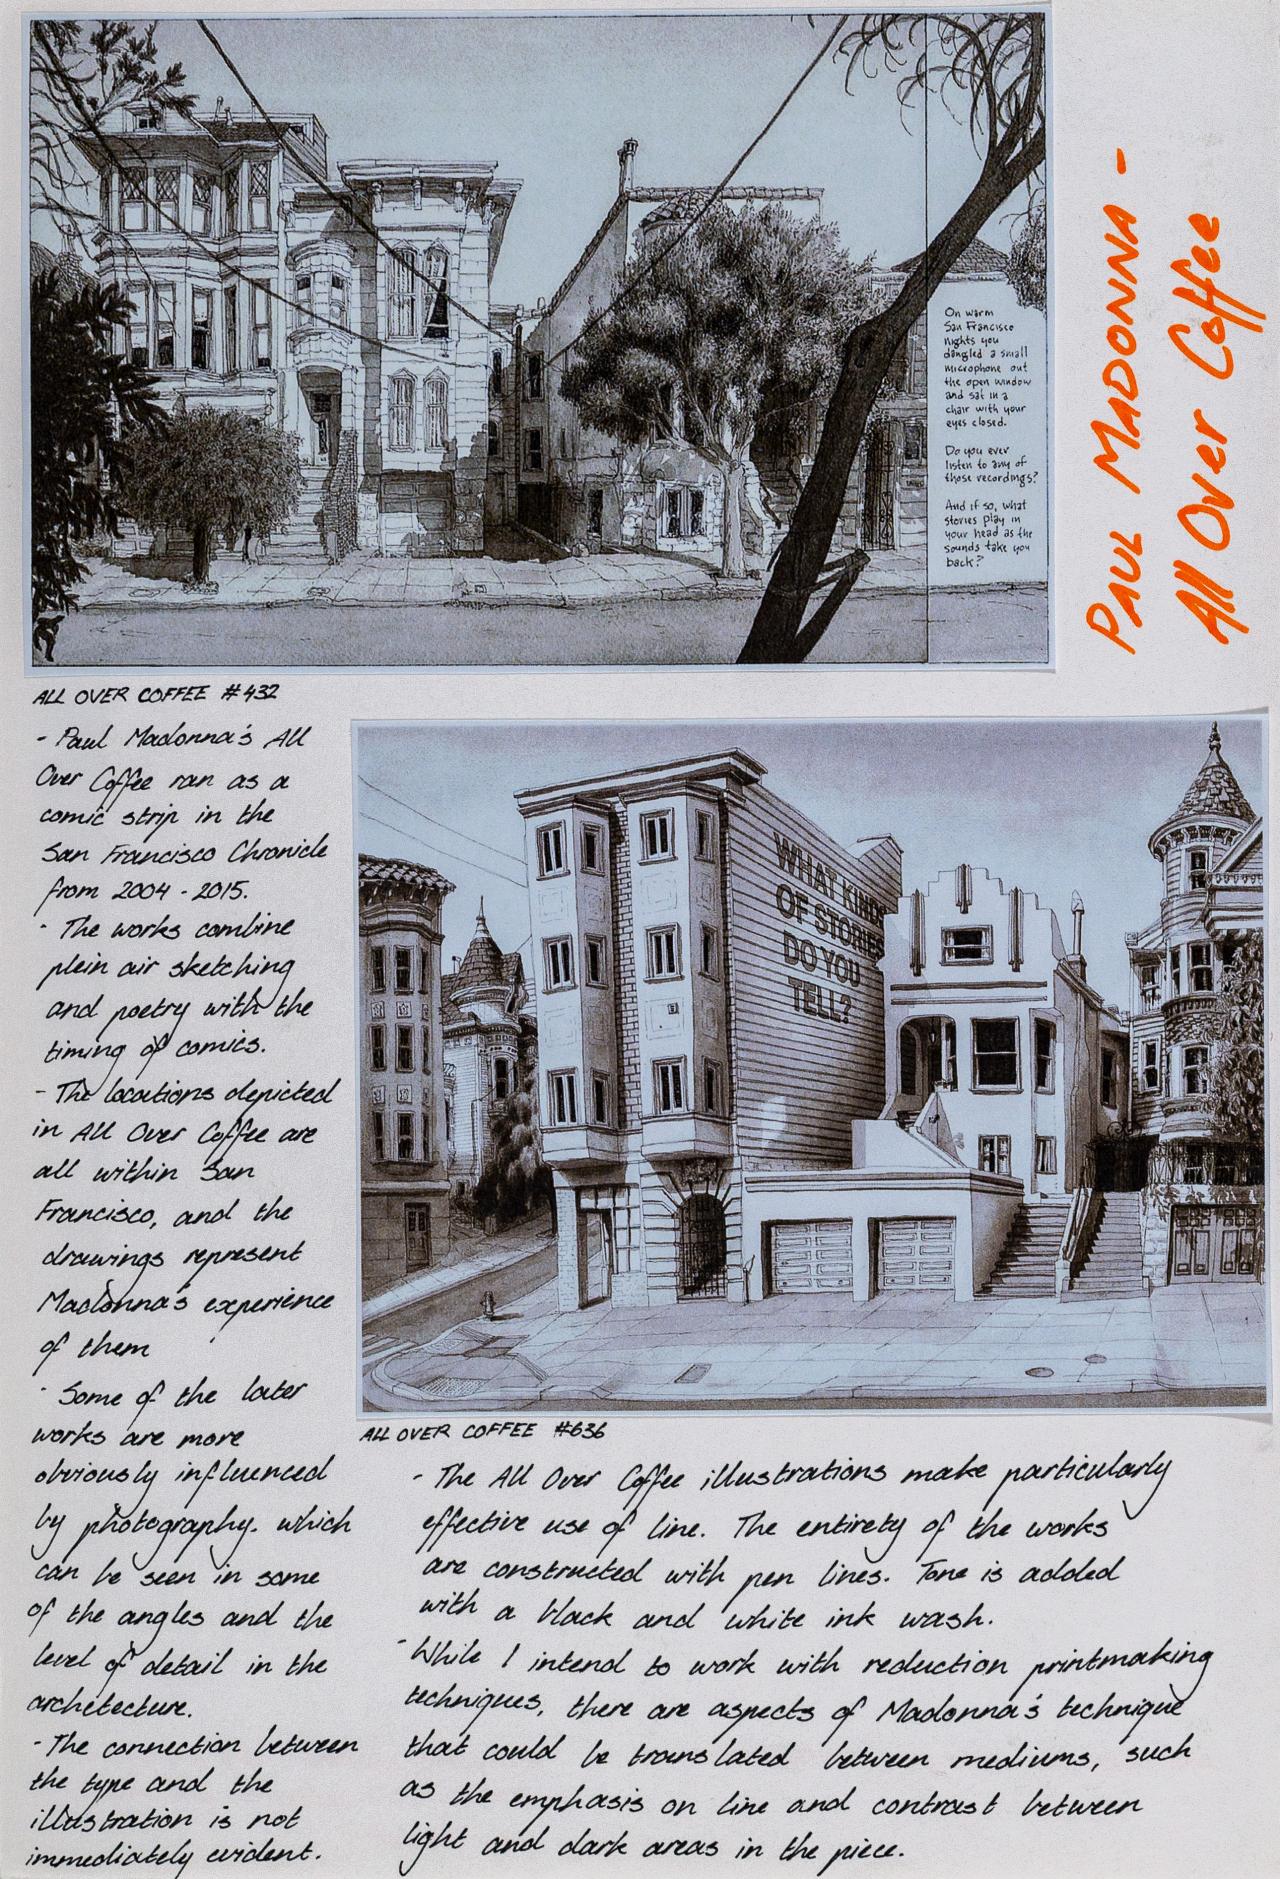 PAUL MADONNA -
All Over Coffee
On warm
San Francisco
nights you
dangled a small
microphone out
the open window
and sat in a
chair with your
eyes closed.
Do you ever
listen to any of
those recordings?
And if so, what
stories play in
your head as the
sounds take you
back?
ALL OVER COFFEE #432
- Paul Madonna's All
Over Coffee ran as a
comic strip in the
San Francisco Chronicle
from 2004 - 2015.
- The works combine
plein air sketching
and poetry with the
timing of comics.
- The locations depicted
in All Over Coffee are
all within San
Francisco, and the
drawings represent
Madonna's experience
of them
- Some of the later
works are more
obviously influenced
by photography. which
can be seen in some
of the angles and the
level of detail in the
architecture.
- The connection between
the type and the
illustration is not
immediately evident.
WHAT KINDS
OF STORIES
DO YOU
TELL?
ALL OVER COFFEE #636
- The All Over Coffee illustrations make particularly
effective use of line. The entirety of the works
are constructed with pen lines. Tone is added
with a black and white ink wash.
- While I intend to work with reduction printmaking
techniques, there are aspects of Madonna's technique
that could be translated between mediums, such
as the emphasis on line and contrast between
light and dark areas in the piece.